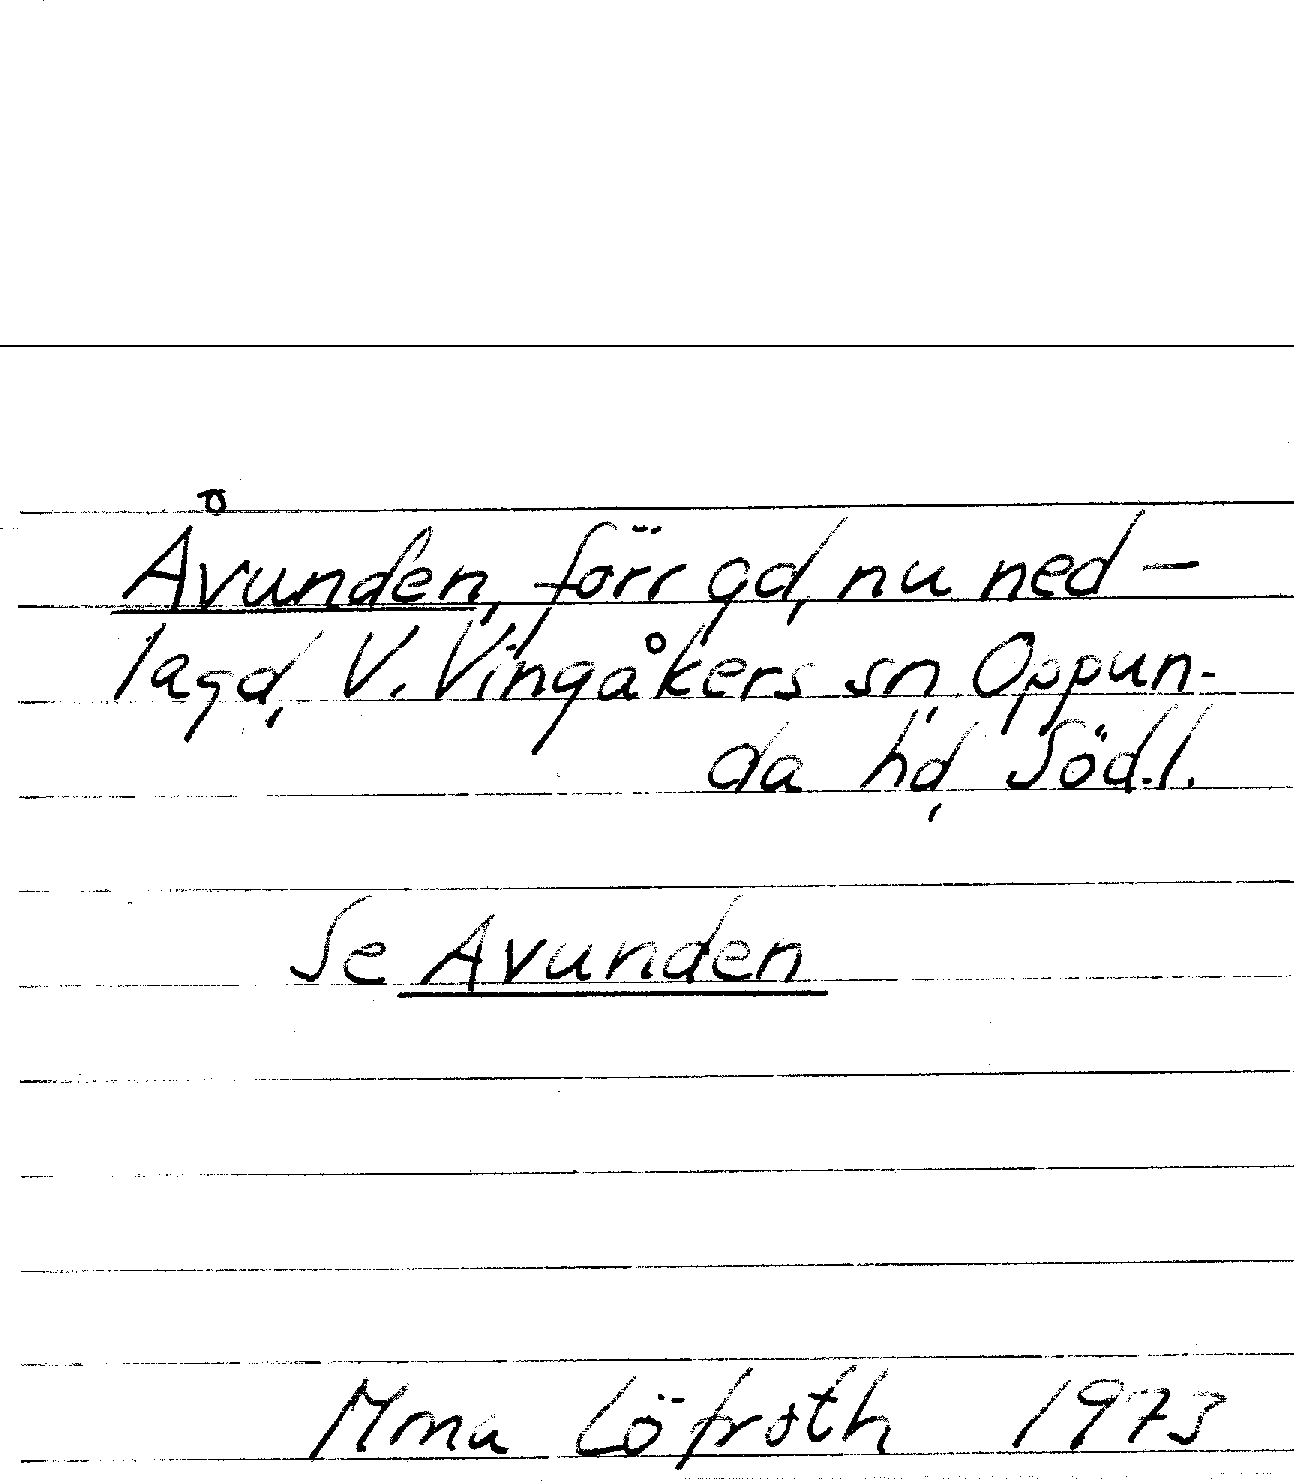 Åvunden, förr gd, nu ned-
lagd, V. Vingåkers sn, Oppun-
da hd, Södl.
Se Avunden
Mona Löfroth 1973